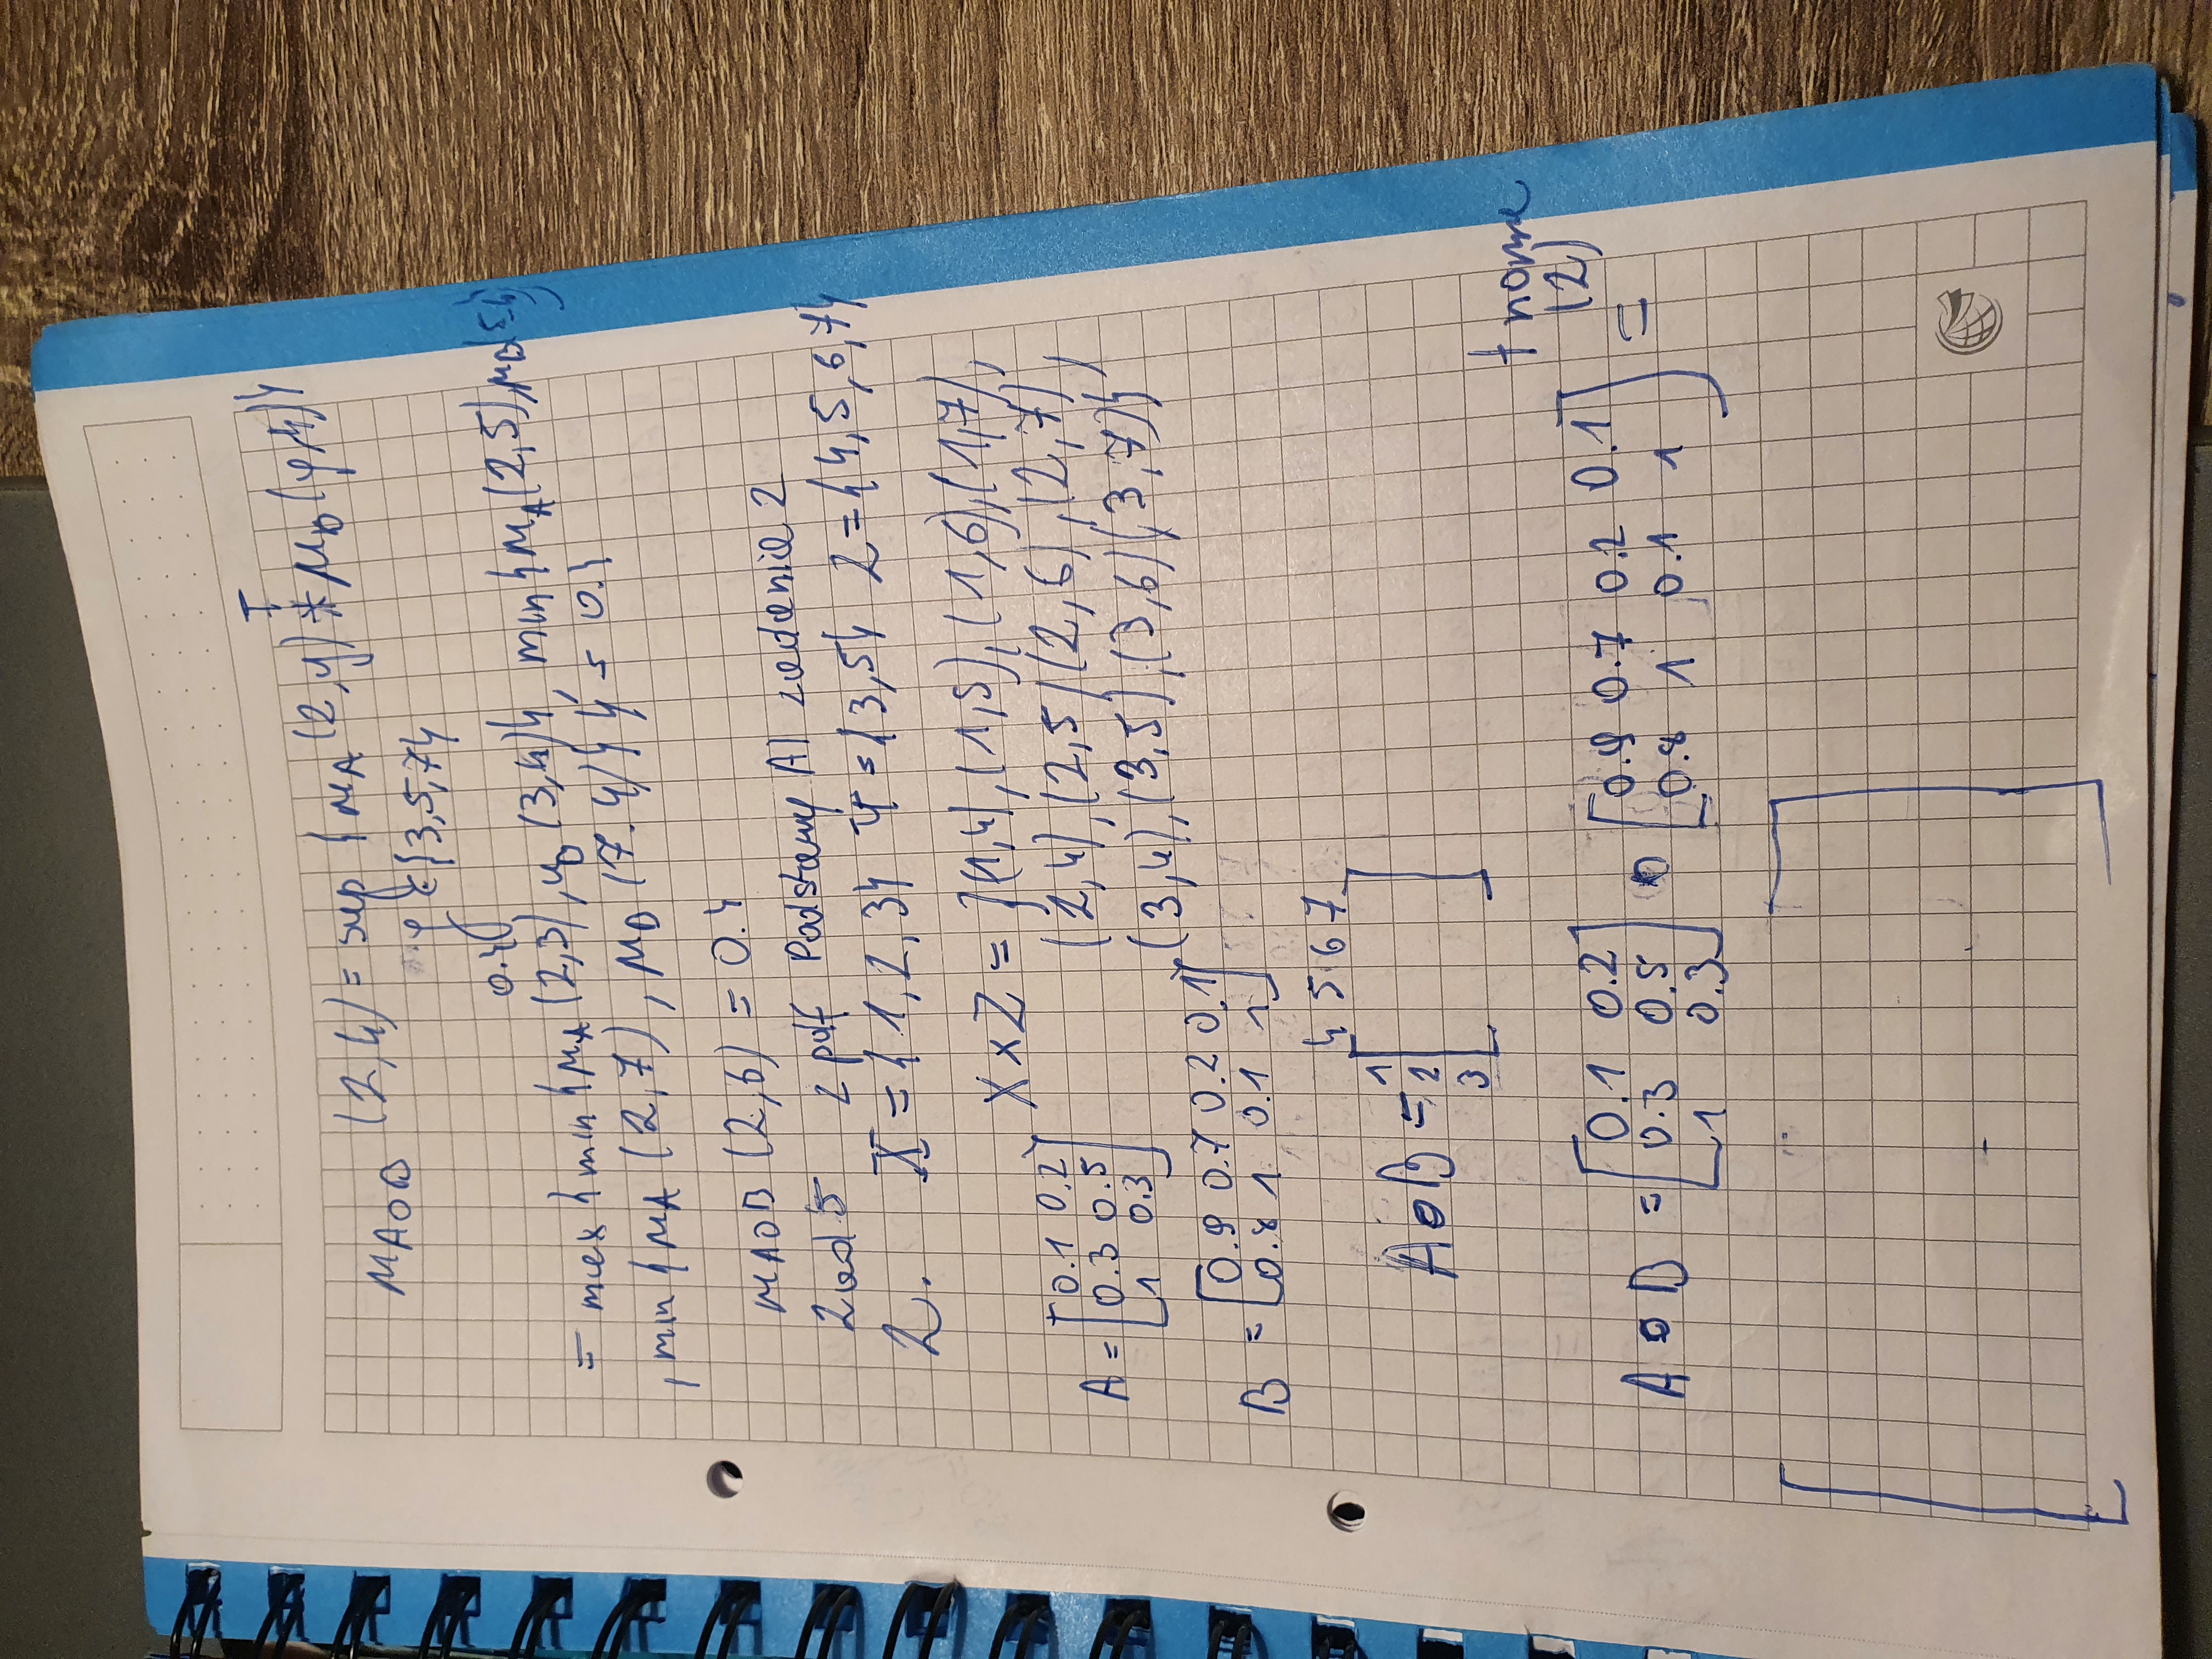 T
μA∘B (2,4) = sup { μA (2,y) * μB (y,4) }
y ∈ {3,5,7}
0.4
= max { min { μA (2,3), μB (3,4) }, min { μA (2,5), μB (5,4)
, min { μA (2,7), μB (7.4) } } = 0.4
μA∘B (2,6) = 0.4
Zad 5 z pdf Podstawy AI zadanie 2
2. X = { 1, 2, 3 } Y = { 3, 5 } Z = { 4, 5, 6, 7 }
X × Z = { (1,4), (1,5), (1,6), (1,7),
(2,4), (2,5) (2,6), (2,7),
(3,4), (3,5), (3,6) (3,7) }
A = [ 0.1 0.2
0.3 0.5
1 0.3 ]
B = [ 0.9 0.7 0.2 0.1
0.8 1 0.1 1 ]
4 5 6 7
A∘B = 1
2
3
t norma
(2)
A ∘ B = [ 0.1 0.2 ] ∘ [ 0.9 0.7 0.2 0.1 ] =
0.3 0.5 0.8 1 0.1 1
1 0.3